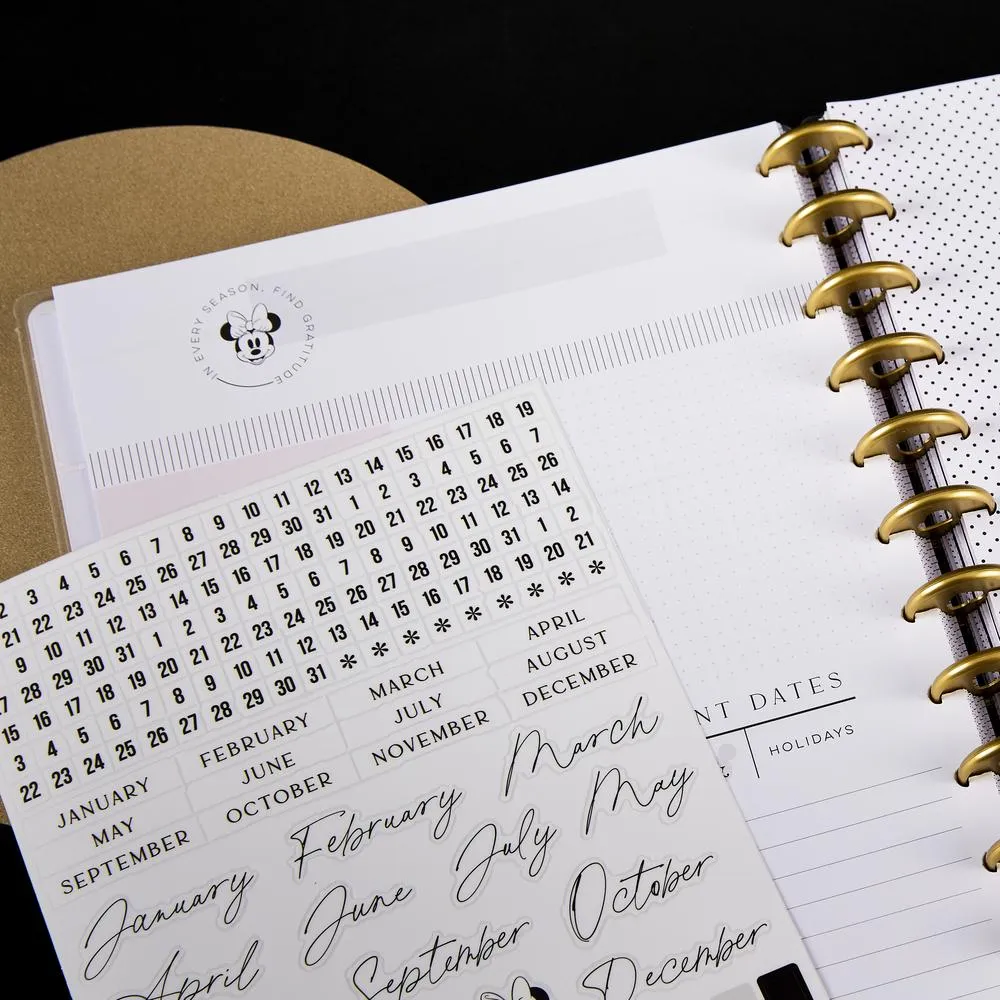 IN EVERY SEASON, FIND GRATITUDE
2 3 4 5 6 7 8 9 10 11 12 13 14 15 16 17 18 19
21 22 23 24 25 26 27 28 29 30 31 1 2 3 4 5 6 7
9 10 11 12 13 14 15 16 17 18 19 20 21 22 23 24 25 26
28 29 30 31 1 2 3 4 5 6 7 8 9 10 11 12 13 14
15 16 17 18 19 20 21 22 23 24 25 26 27 28 29 30 31 1 2
3 4 5 6 7 8 9 10 11 12 13 14 15 16 17 18 19 20 21
22 23 24 25 26 27 28 29 30 31 * * * * * * * * *
JANUARY FEBRUARY MARCH APRIL
MAY JUNE JULY AUGUST
SEPTEMBER OCTOBER NOVEMBER DECEMBER
January February March
April June July May
September October
December
NT DATES
HOLIDAYS